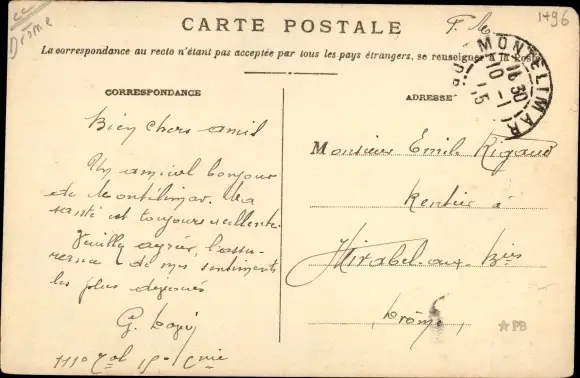 cc
Drôme
F. M.
1496
CARTE POSTALE
La correspondance au recto n'étant pas acceptée par tous les pays étrangers, se renseigner à la Poste
MONTELIMAR
16 30
10 -1
15
CORRESPONDANCE
ADRESSE
Bien chers amis
Un amical bonjour
de Montélimar. Ma
santé est toujours excellente.
Veuillez agréer, l'assu-
rance de mes sentiments
les plus dévoués
G.
111e
Monsieur Emile Rigaud
Rentier à
Mirabel-aux-Bies
Drôme,
PB